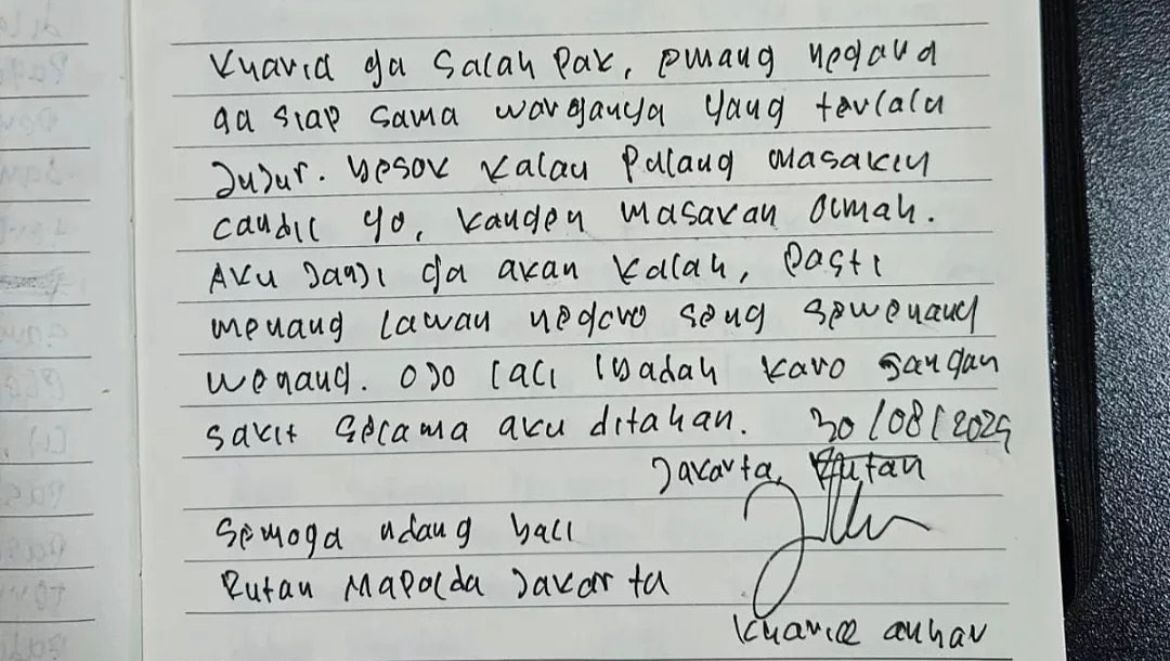 Kharid ga salah Pak, emang negara
ga siap sama warganya yang terlalu
jujur. besok kalau pulang masakin
candil yo, kangen masakan olmah.
Aku janji ga akan kalah, pasti
menang lawan negoro seng sewenang
wenang. ojo lali ibadah karo jangan
sakit selama aku ditahan. 30/08/2025
Jakarta, Rutan
Semoga ndang bali
Rutan Mapolda Jakarta
Kharid anhar